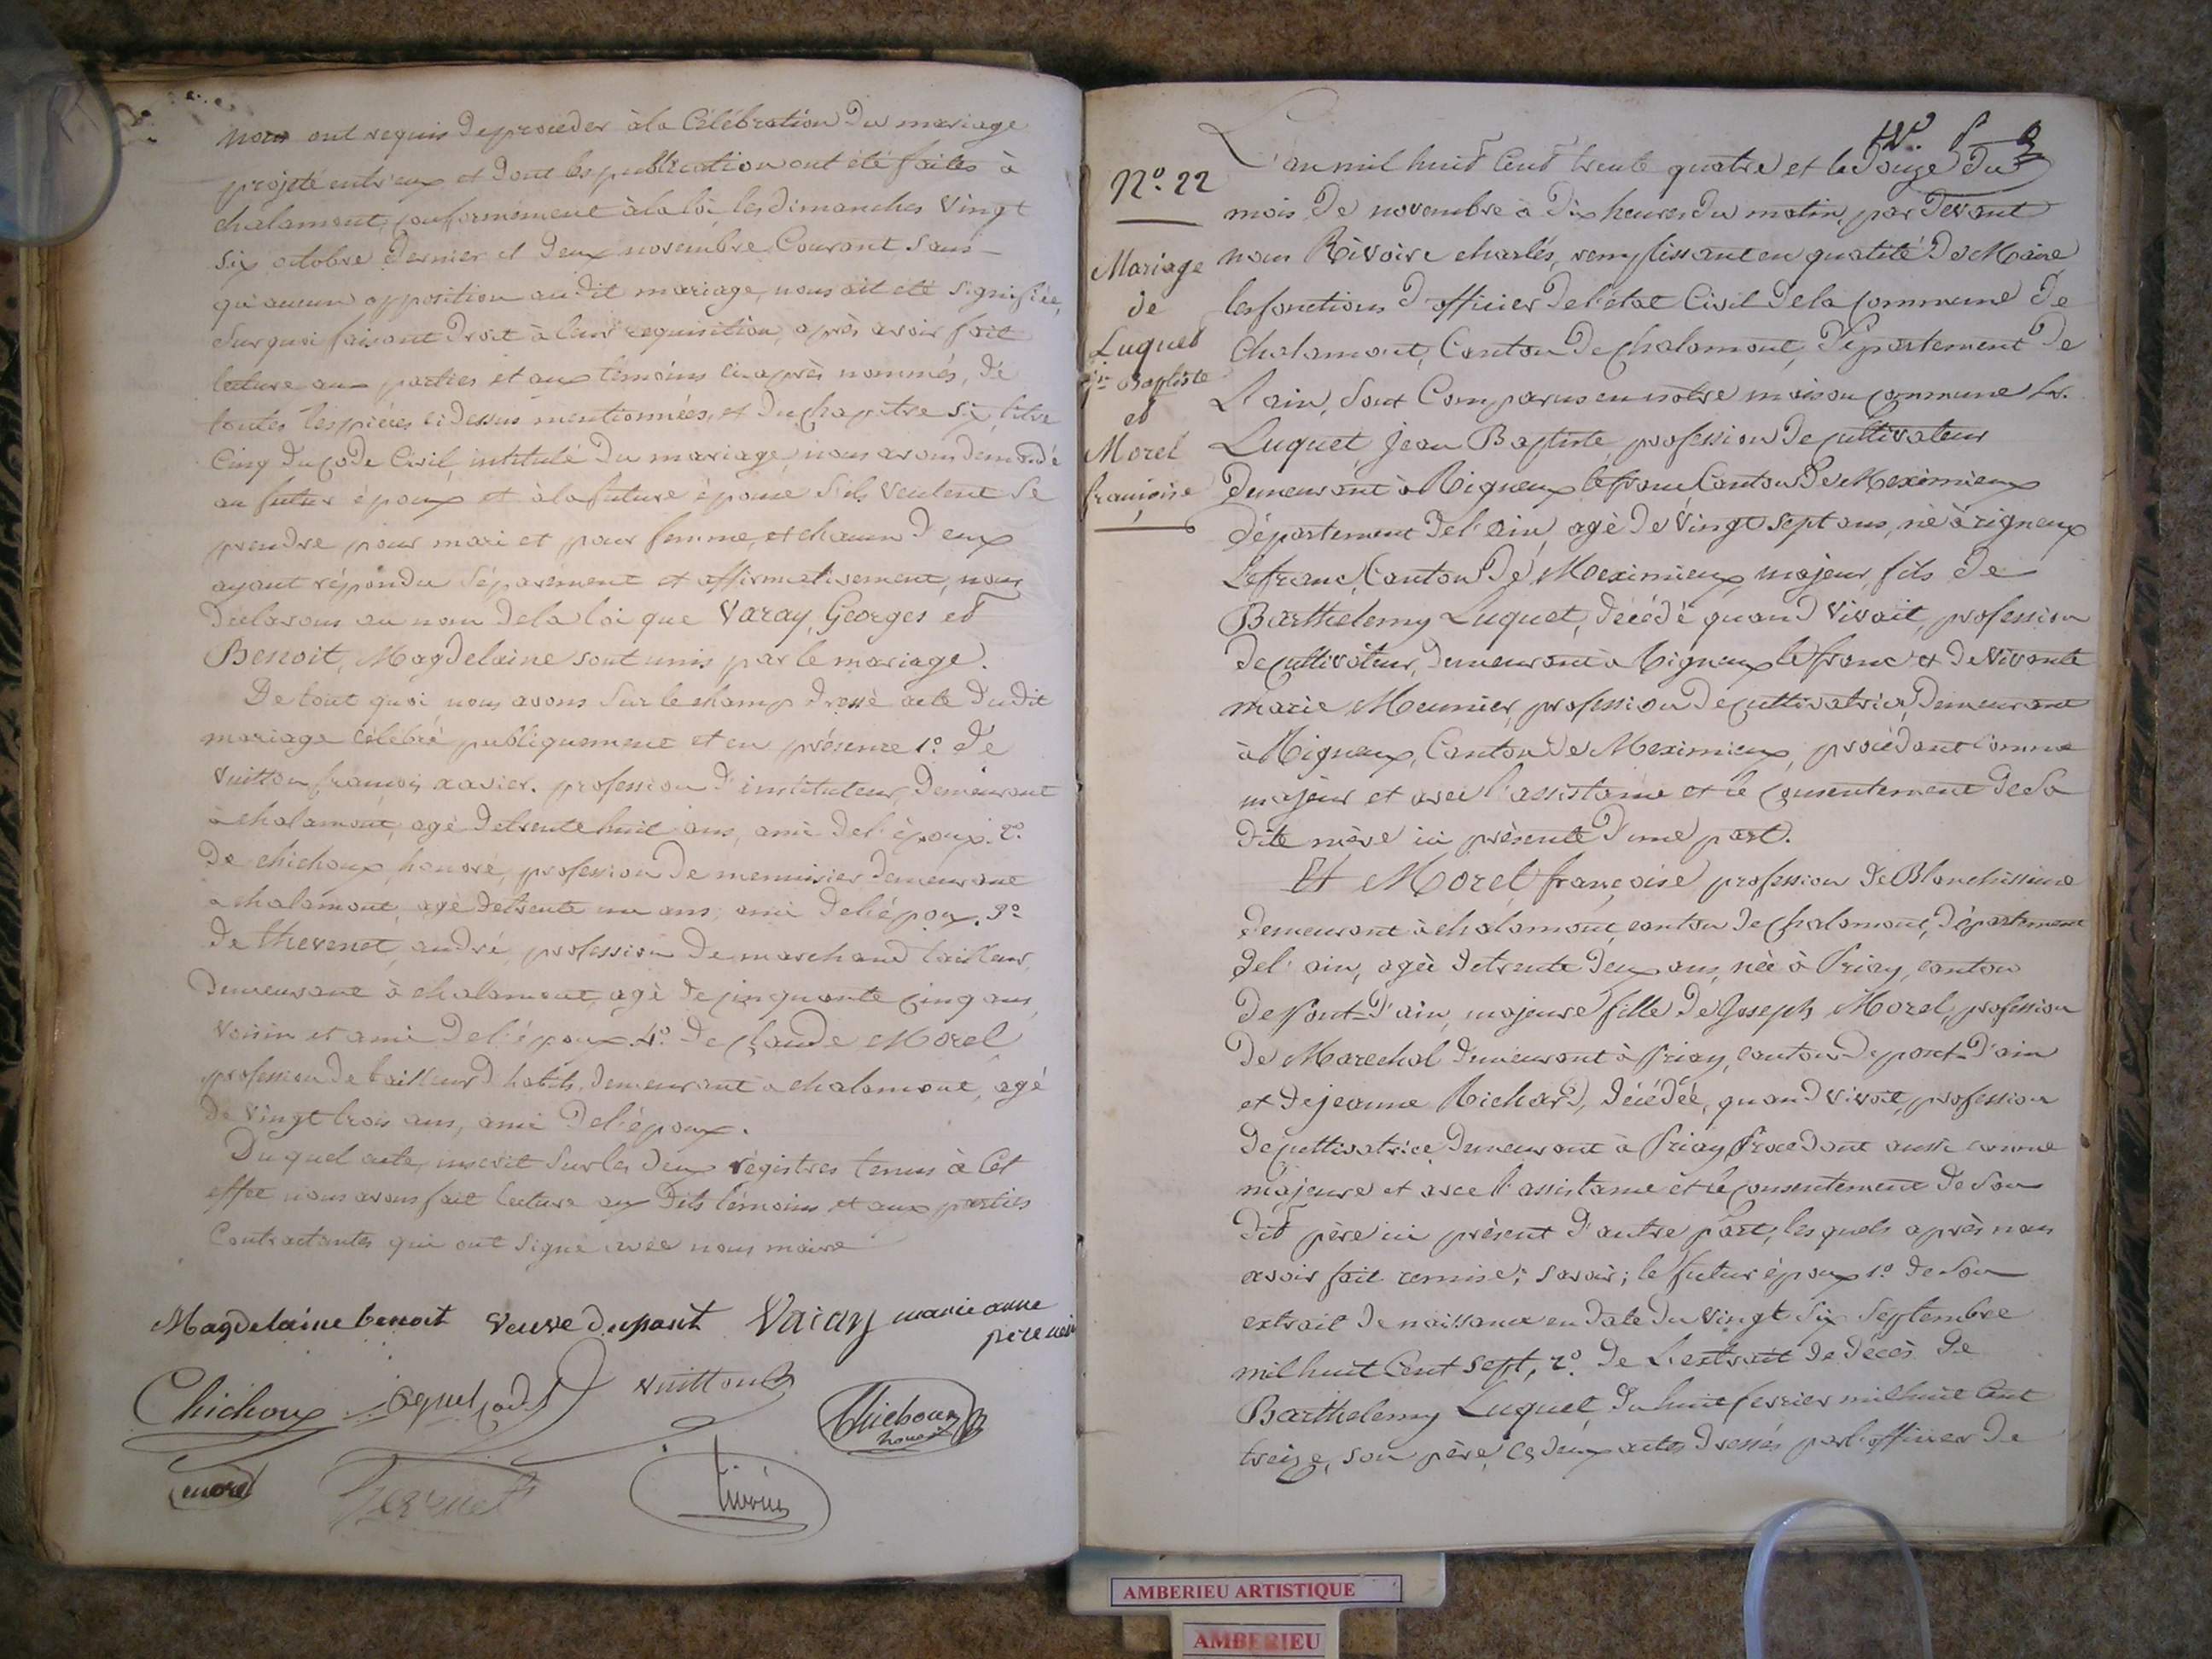 nous ont requis de procéder à la Célébration du mariage
projeté entr'eux et dont les publication ont été faites à
chalamont, conformément à la loi les dimanches Vingt
six octobre dernier et deux novembre Courant sans
qu'aucun opposition audit mariage, nous ait été signifiée,
Sur quoi faisant droit à leur requisition, après avoir fait
lecture aux parties et aux témoins ci après nommés, de
toutes les pièces ci dessus mentionnées, et du chapitre six, titre
Cinq du Code Civil, intitulé du mariage, nous avons demandé
au futur époux et à la future épouse s'ils veulent se
prendre pour mari et pour femme, et chacun d'eux
ayant répondu séparément et affirmativement, nous
declarons au nom de la loi que Varay, Georges et
Benoit, Magdelaine sont unis par le mariage.
De tout quoi nous avons sur le champ dressé acte dudit
mariage célébré publiquement et en présence 1º. de
Vuitton françois xavier. profession d'instituteur, demeurant
à chalamont, agé de trente huit ans, ami de l'époux. 2º.
De chichoux, honoré, profession de menuisier demeurant
à chalamont, agé de trente un ans, ami de l'époux. 3º
de thevenet, andré, profession de marchand tailleur,
demeurant à chalamont, agé de cinquante cinq ans,
voisin et ami de l'époux. 4º. de Claude Morel
profession de tailleur d'habits, demeurant à chalamont, agé
de vingt trois ans, ami de l'époux.
Du quel acte, inscrit sur les deux régistres tenus à Cet
effet nous avons fait lecture aux dits témoins et aux parties
Contractantes qui ont signé avec nous maire
Magdelaine benoit veuve dupont Varay marie anne
Chichoux vuitton Chichoux
honoré
morel
rivoire
Nº. 22
Mariage
de
Luquet
Jn Baptiste
et
Morel
françoise
L'an mil huit Cent trente quatre et le douze du
mois de novembre à dix heures du matin, par devant
nous Rivoire charles, remplissant en qualité de Maire
les fonctions d'officier de l'état Civil de la commune de
Chalamont, Canton de chalamont, Département de
L'ain, sont Comparus en notre maison commune
Luquet, Jean Baptiste, profession de cultivateur
demeurant à Rigneux le franc, Canton de Meximieux
département de l'ain, agé de Vingt sept ans, né à rigneux
Le franc, Canton de Meximieux, majeur, fils de
Barthelemy Luquet, décédé quand vivait, profession
de cultivateur, demeurant à Rigneux le franc et de vivante
marie Meunier, profession de cultivatrice, demeurant
à Rigneux, Canton de Meximieux, procédant comme
majeur et avec l'assistance et le consentement de sa
dite mère ici présente d'une part.
Et Morel, françoise, profession de Blanchisseuse
demeurant à chalamont, canton de chalamont, département
de l'ain, agée de trente deux ans, née à Priay, canton
de Pont-d'ain, majeure fille de Joseph Morel, profession
de Marechal demeurant à Priay, canton de pont-d'ain
et de jeanne Richard, décédée, quand vivait, profession
de cultivatrice demeurant à Priay Procédant aussi comme
majeure et avec l'assistance et le consentement de son
dit père ici présent d'autre part, les quels après nous
avoir fait remise; savoir; le futur époux 1º. de son
extrait de naissance en date du vingt six septembre
mil huit Cent sept, 2º. de L'extrait de décès de
Barthelemy Luquet, du huit fevrier mil huit Cent
treize, son père, ces deux actes dressés par l'officier de
AMBERIEU ARTISTIQUE
AMBERIEU